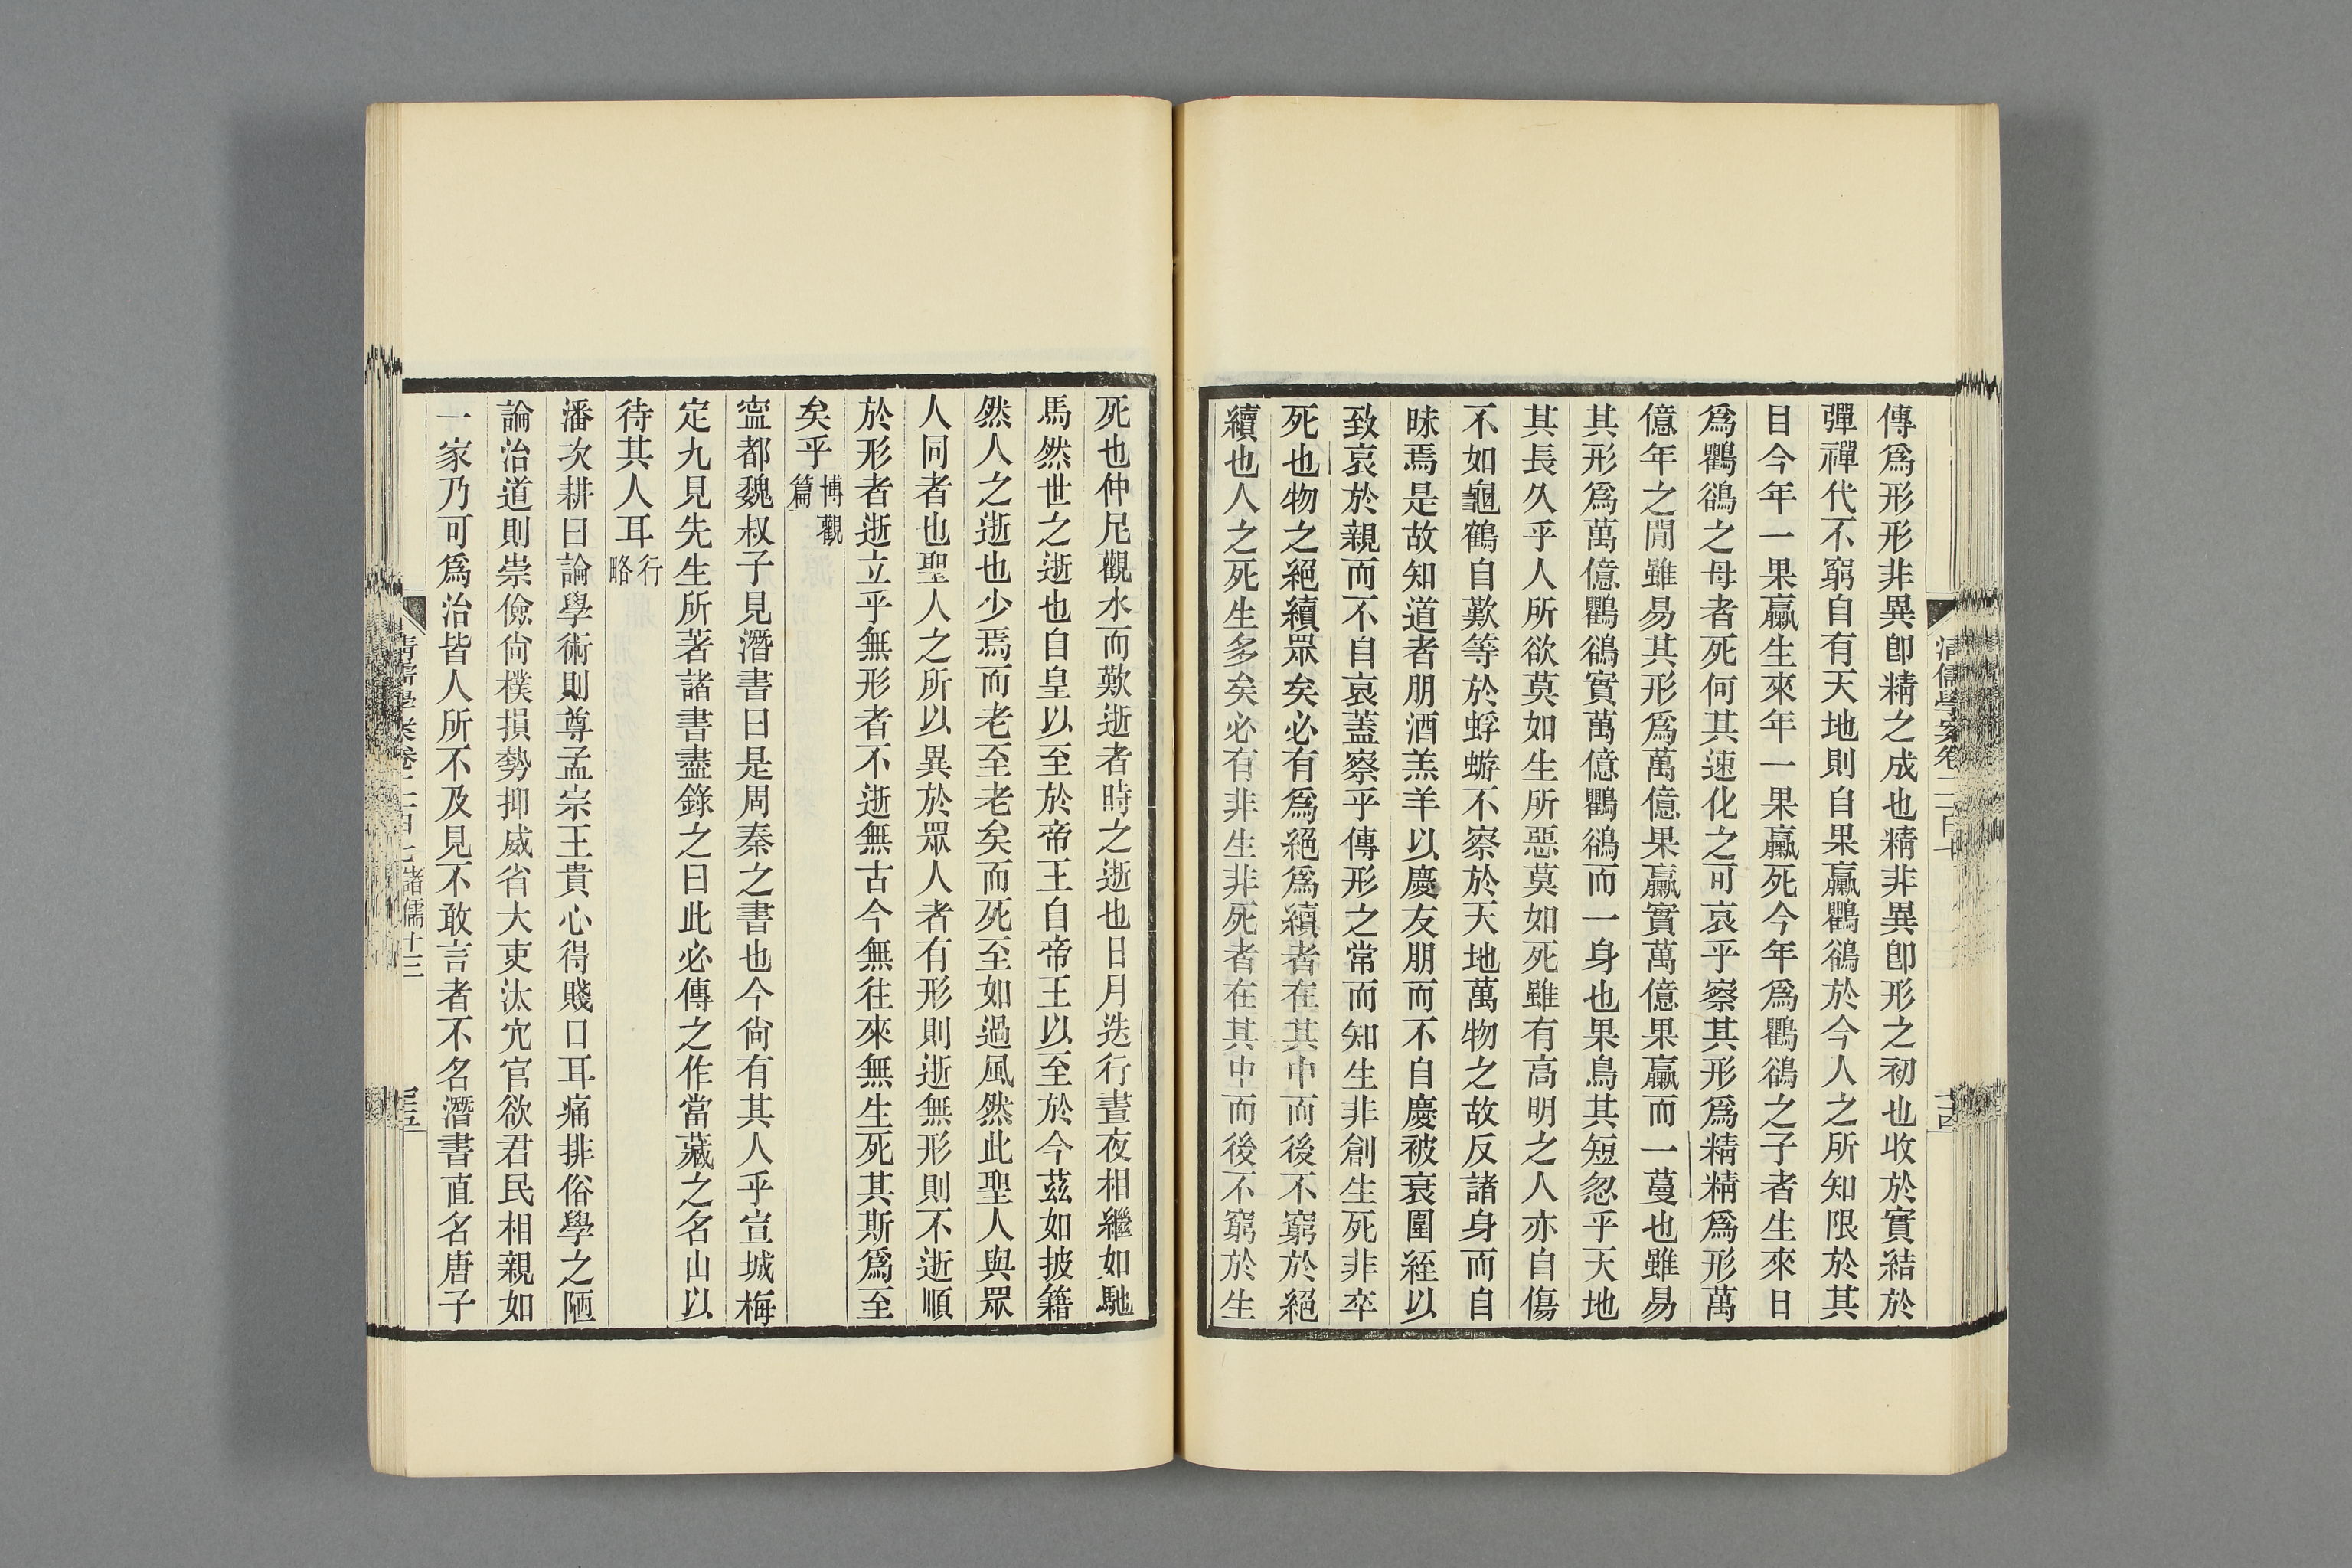 傳爲形形非異卽精之成也精非異卽形之初也收於實結於
彈禪代不窮自有天地則自果臝鸜鵒於今人之所知限於其
目今年一果臝生來年一果臝死今年爲鸜鵒之子者生來日
爲鸜鵒之母者死何其速化之可哀乎察其形爲精精爲形萬
億年之閒雖易其形爲萬億果臝實萬億果臝而一蔓也雖易
其形爲萬億鸜鵒實萬億鸜鵒而一身也果鳥其短忽乎天地
其長久乎人所欲莫如生所惡莫如死雖有高明之人亦自傷
不如龜鶴自歎等於蜉蝣不察於天地萬物之故反諸身而自
昧焉是故知道者朋酒羔羊以慶友朋而不自慶被衰圍絰以
致哀於親而不自哀蓋察乎傳形之常而知生非創生死非卒
死也物之絕續眾矣必有爲絕爲續者在其中而後不窮於絕
續也人之死生多矣必有非生非死者在其中而後不窮於生
清儒學案卷二百七
死也仲尼觀水而歎逝者時之逝也日月迭行晝夜相繼如馳
馬然世之逝也自皇以至於帝王自帝王以至於今茲如披籍
然人之逝也少焉而老至老矣而死至如過風然此聖人與眾
人同者也聖人之所以異於眾人者有形則逝無形則不逝順
於形者逝立乎無形者不逝無古今無往來無生死其斯爲至
矣乎博觀篇
寍都魏叔子見潛書曰是周秦之書也今尙有其人乎宣城梅
定九見先生所著諸書盡錄之曰此必傳之作當藏之名山以
待其人耳行略
潘次耕曰論學術則尊孟宗王貴心得賤口耳痛排俗學之陋
論治道則崇儉尙樸損勢抑威省大吏汰冗官欲君民相親如
一家乃可爲治皆人所不及見不敢言者不名潛書直名唐子
清儒學案卷二百七 諸儒十三